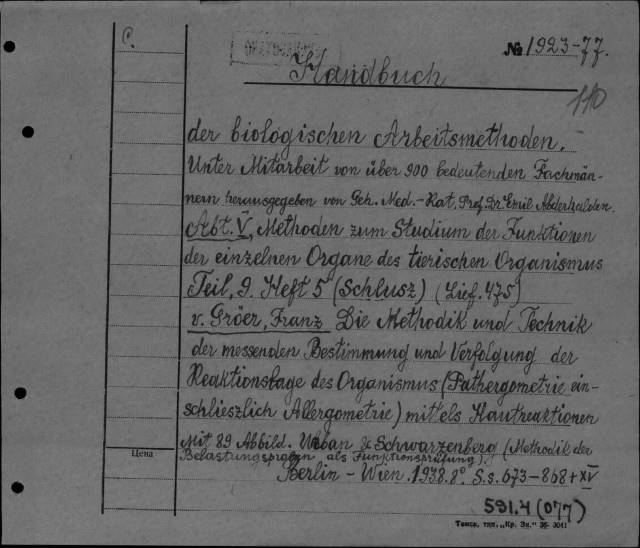 C.
№ 1923-77.
Handbuch
110
der biologischen Arbeitsmethoden.
Unter Mitarbeit von über 900 bedeutenden Fachmän-
nern herausgegeben von Geh. Med.-Rat. Prof. Dr Emil Abderhalden.
Abt. V, Methoden zum Studium der Funktionen
der einzelnen Organe des tierischen Organismus
Teil, 9. Heft 5 (Schlusz) (Lief. 475)
v. Gröer, Franz Die Methodik und Technik
der messenden Bestimmung und Verfolgung der
Reaktionslage des Organismus (Pathergometrie ein-
schlieszlich Allergometrie) mittels Hautreaktionen
Mit 89 Abbild. Urban & Schwarzenberg (Methodik der
Belastungsproben als Funktionsprüfung).
Цена
Berlin – Wien. 1938. 8° S.s. 673–868 + XV
591.4 (077)
Томск, тип. „Кр. Зн." 36- 3041